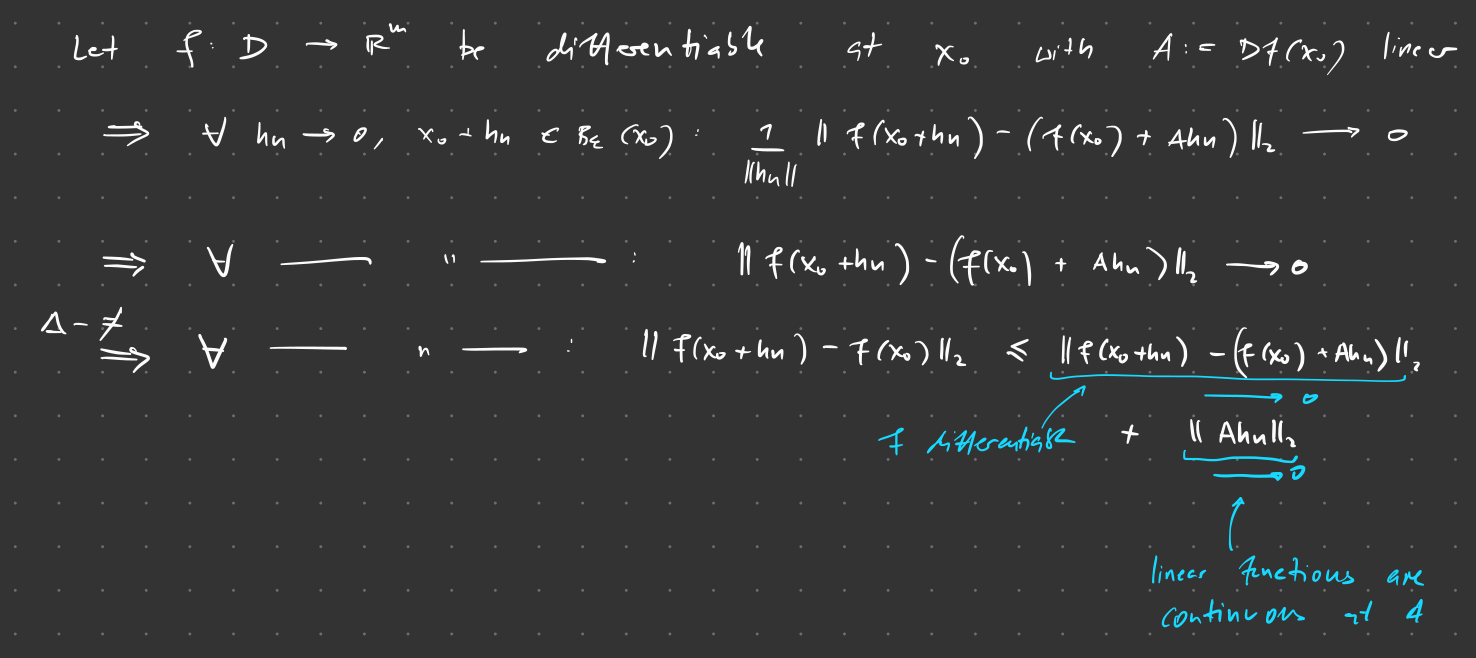 Let f: D → ℝᵐ be differentiable at x₀ with A := Df(x₀) linear
⟹ ∀ hₙ → 0, x₀ + hₙ ∈ B_ε(x₀) : 1/‖hₙ‖ ‖ f(x₀+hₙ) − (f(x₀) + Ahₙ) ‖₂ ⟶ 0
⟹ ∀ —— " —— : ‖ f(x₀+hₙ) − (f(x₀) + Ahₙ) ‖₂ ⟶ 0
Δ-≠
⟹ ∀ —— " —— : ‖ f(x₀+hₙ) − f(x₀) ‖₂ ≤ ‖ f(x₀+hₙ) − (f(x₀) + Ahₙ) ‖₂
⟶ 0
f differentiable + ‖ Ahₙ ‖₂
⟶ 0
linear functions are
continuous at